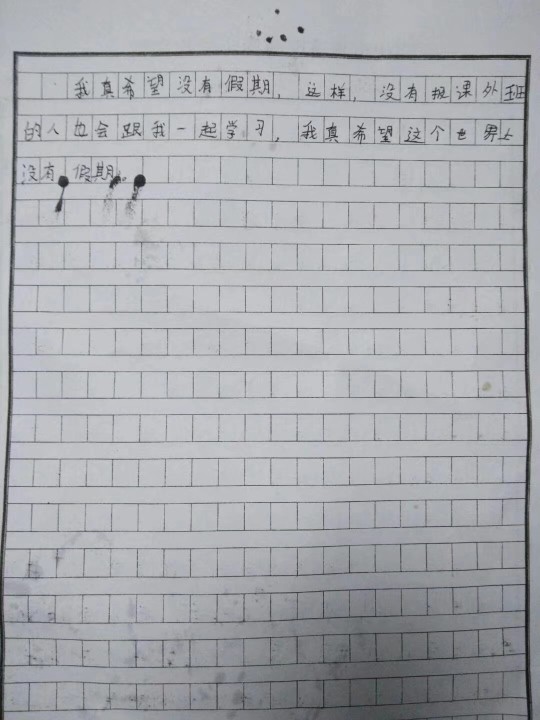 我真希望没有假期,这样,没有报课外班
的人也会跟我一起学习,我真希望这个世界上
没有假期。